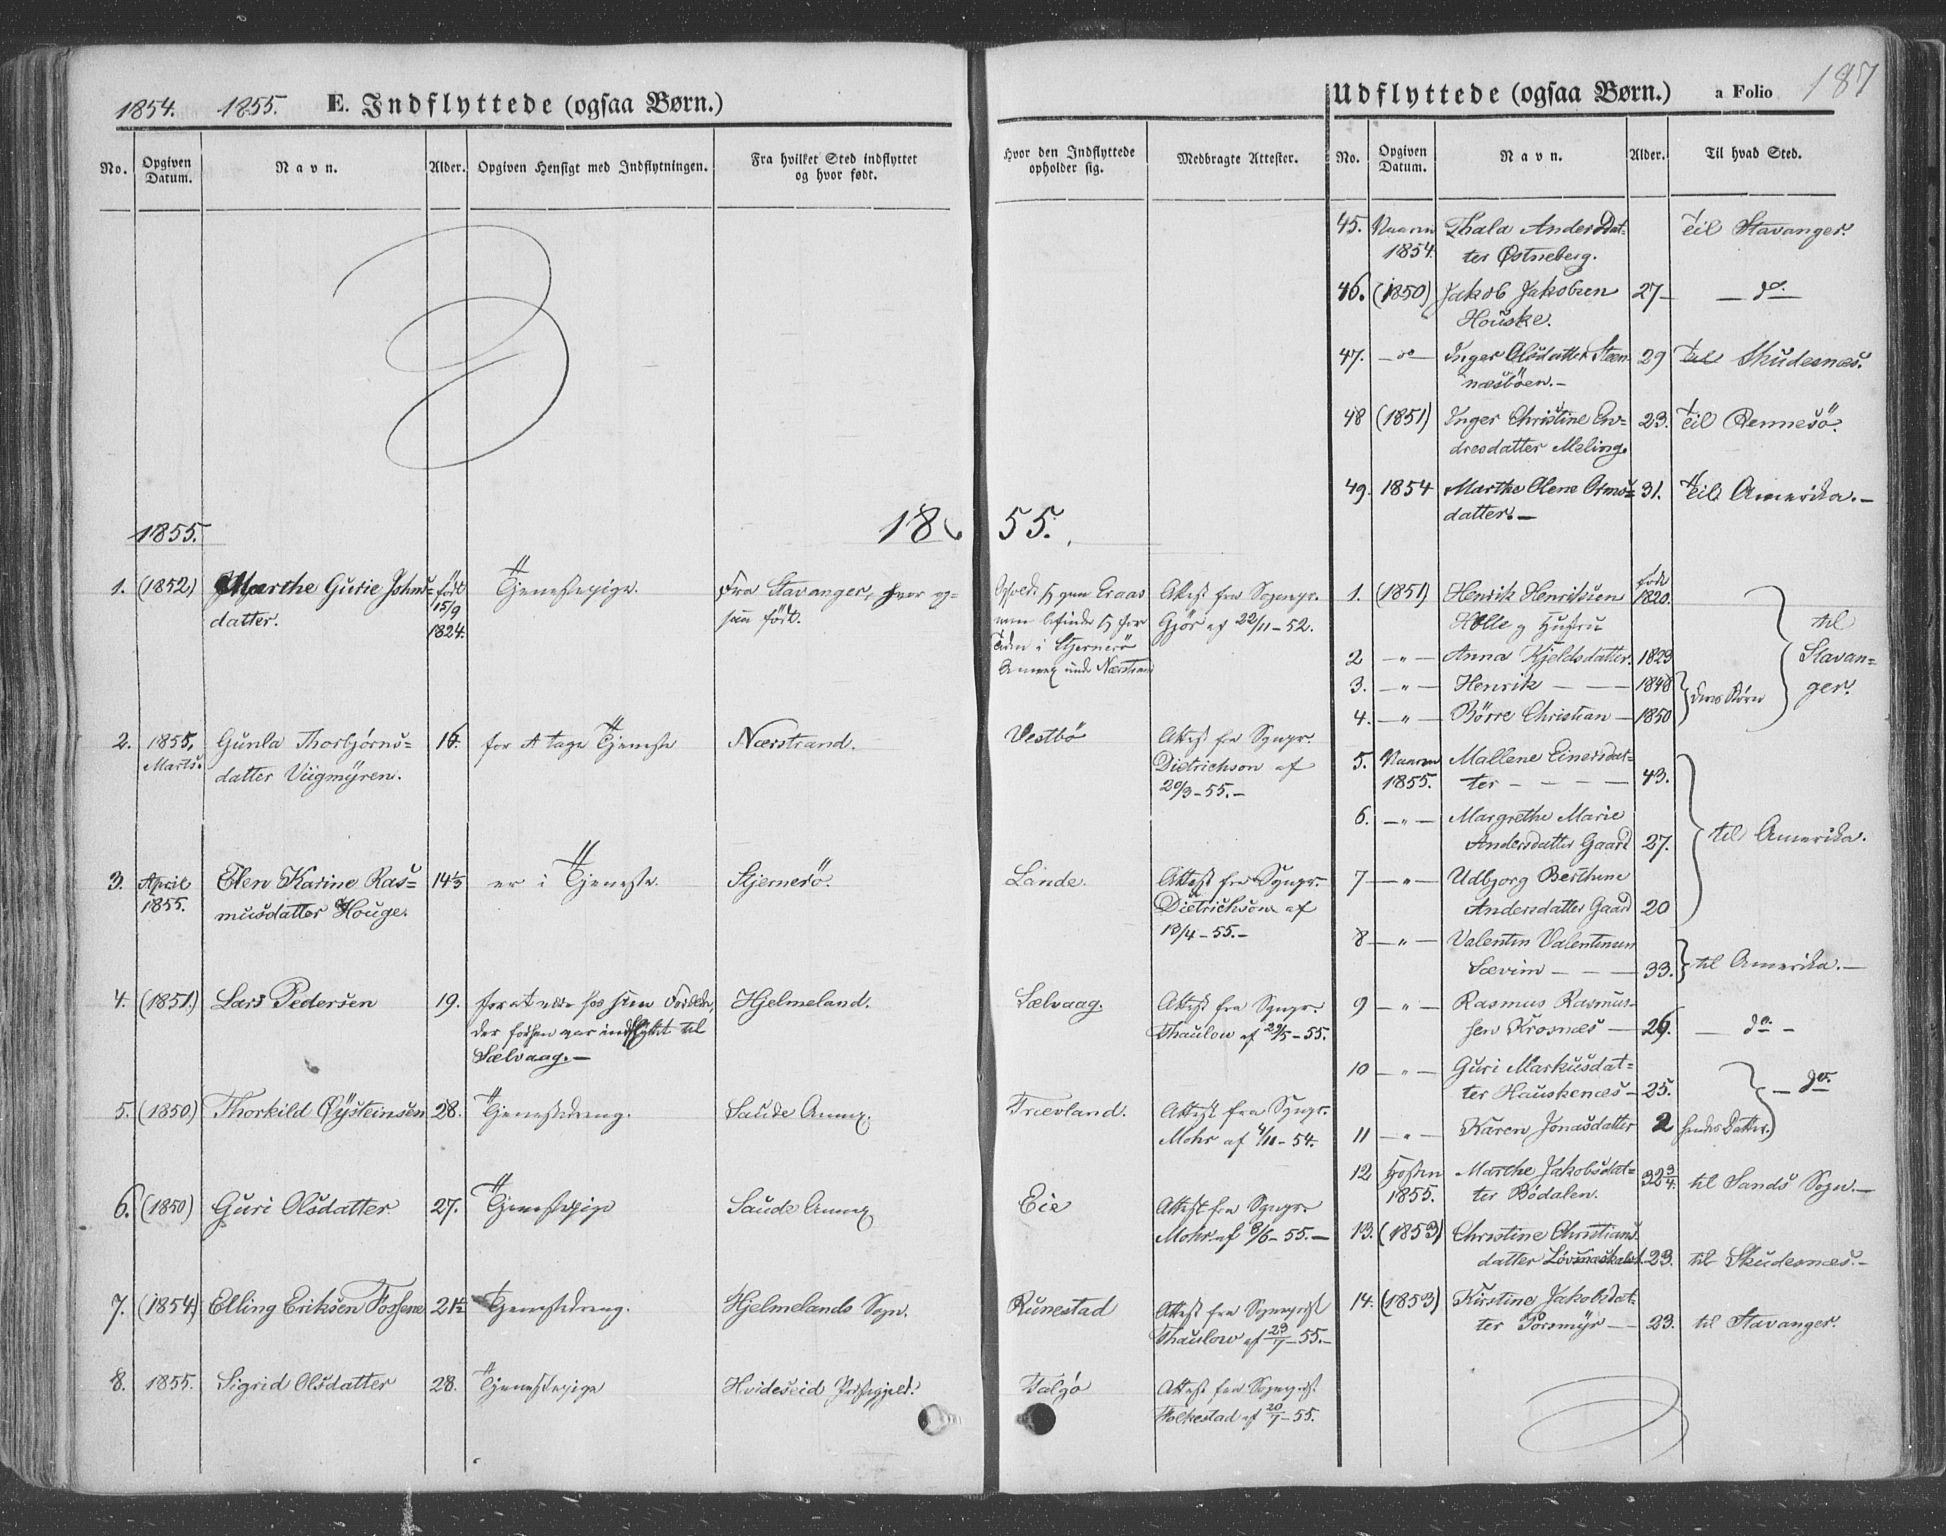 1854. 1855. E. Indflyttede (ogsaa Børn.)
No. Opgiven Datum. Navn. Alder. Opgiven Hensigt med Indflytningen. Fra hvilket Sted indflyttet og hvor født. Hvor den Indflyttede opholder sig. Medbragte Attester.
1855. 1855.
1. (1852) Marthe Gurie Johns= født Tjenestepige. Fra Stavanger, hvor og= Attest fra Sognepr.
datter. 15/9 saa født. Gjør af 22/11-52.
1824.
2. 1855, Gunla Thorbjørns= 16. for at tage Tjeneste Nærstrand. Vestbö Attest fra Sgnpr.
Marts. datter Viigmyren. Dietrichson af
20/3-55.-
3. April Elen Karine Ras= 14 1/3 er i Tjeneste. Stjernerö. Lande. Attest fra Sgnpr.
1855. musdatter Houge. Dietrichson af
13/4-55.-
4. (1851.) Lars Pedersen 19. for at være hos sine Forældre, Hjelmeland. Sælvaag. Attest fra Sgnpr.
der forhen var indflyttet til Thaulow af 29/5-55.
Sælvaag.-
5. (1850) Thorkild Øysteinsen 28. Tjenestedreng. Saude Annex. Trievland. Attest fra Sgnpr.
Mohr af 4/11-54.
6. (1850) Guri Olsdatter 27. Tjenestepige Saude Annex Eie Attest fra Sgnpr.
Mohr af 8/6-55.-
7. (1854) Elling Eriksen Fossene 21 1/2 Tjenestedreng. Hjelmelands Sogn. Runestad Attest fra Sogneprst
Thaulow af 29/7-55.-
8. 1855. Sigrid Olsdatter 28. Tjenestepige Hvideseid Præstegjeld. Talgø Attest fra Sogneprst.
Folkestad af 20/7-55.
Udflyttede (ogsaa Børn.) a Folio 187
No. Opgiven Datum. Navn. Alder. Til hvad Sted.
45. Vaaren Thala Andersdat= til Stavanger.
1854. ter Østneberg.
46. (1850) Jakob Jakobsen 27- - do. -
Houske.
47. - do - Inger Olsdatter Steen= 29 til Skudesnes.
næsböen.-
48 (1851) Inger Christine En= 23. til Rennesö.
dresdatter Meling.
49. 1854 Marthe Olene Asmu= 31. til Amerika.-
datter.-
1. (1851) Henrik Henriksen født 1820. til Stavan=ger.
Holle og Hustru
2 - " - Anna Kjeldsdatter. 1823
3. - " - Henrik - - 1848 deres Børn
4. - " - Börre Christian - 1850
5. Vaaren Mallene Einersdat=
1855. ter - - - - 43.
6. - " - Margrethe Marie til Amerika.
Andersdatter Gaard 27.
7 - " - Udbjorg Berthine
Andersdatter Gaard 20
8 - " - Valentin Valentinsen
Sævim - - - 33. til Amerika.-
9 - " - Rasmus Rasmus=
sen Krosnæs - 26. - do. -
10 - " - Guri Markusdat=
ter Hauskenæs - 25. - do.
11 - " - Karen Jonasdatter 2 hendes Datter.
12 Høsten Marthe Jakobsdat= 32 3/4 til Sands Sogn.-
1855. ter Bödalen.
13. (1853) Christine Christians
datter 23. til Skudesnes.-
14. (1853) Kirstine Jakobsdat=
ter Porsmÿr - 23. til Stavanger.